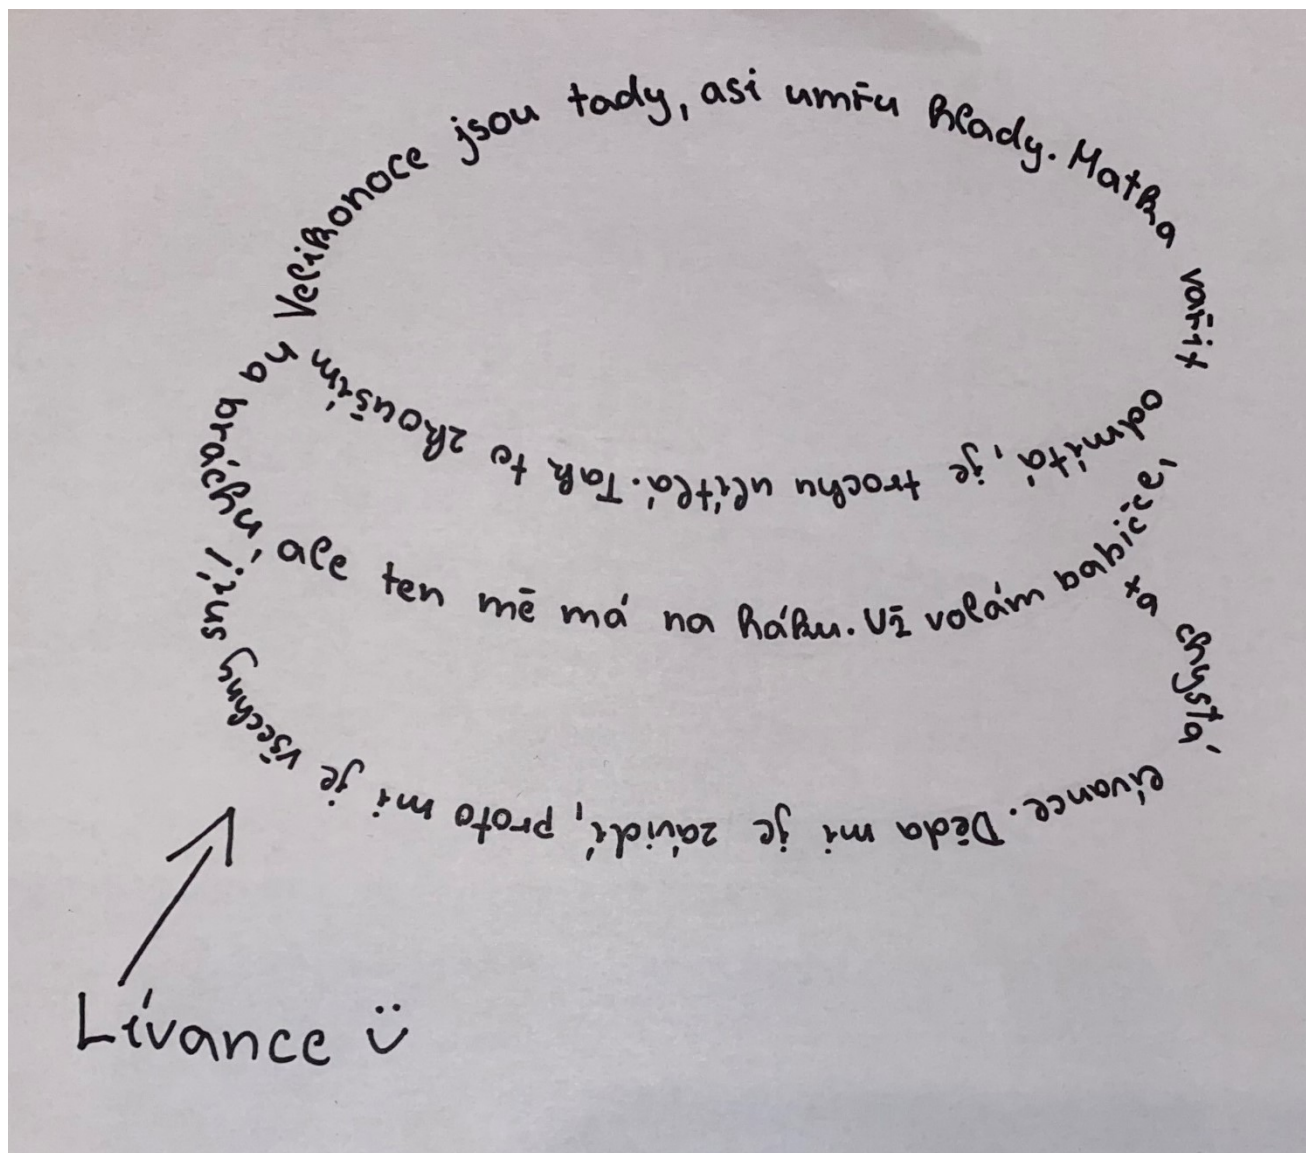 Velikonoce jsou tady, asi umřu hlady. Matka vařit
odmítá, je trochu ulítlá. Tak to zkouším
na bráchu, ale ten mě má na háku. Už volám babičce,
ta chystá lívance. Děda mi je závidí, proto mi je všechny sní!
Lívance